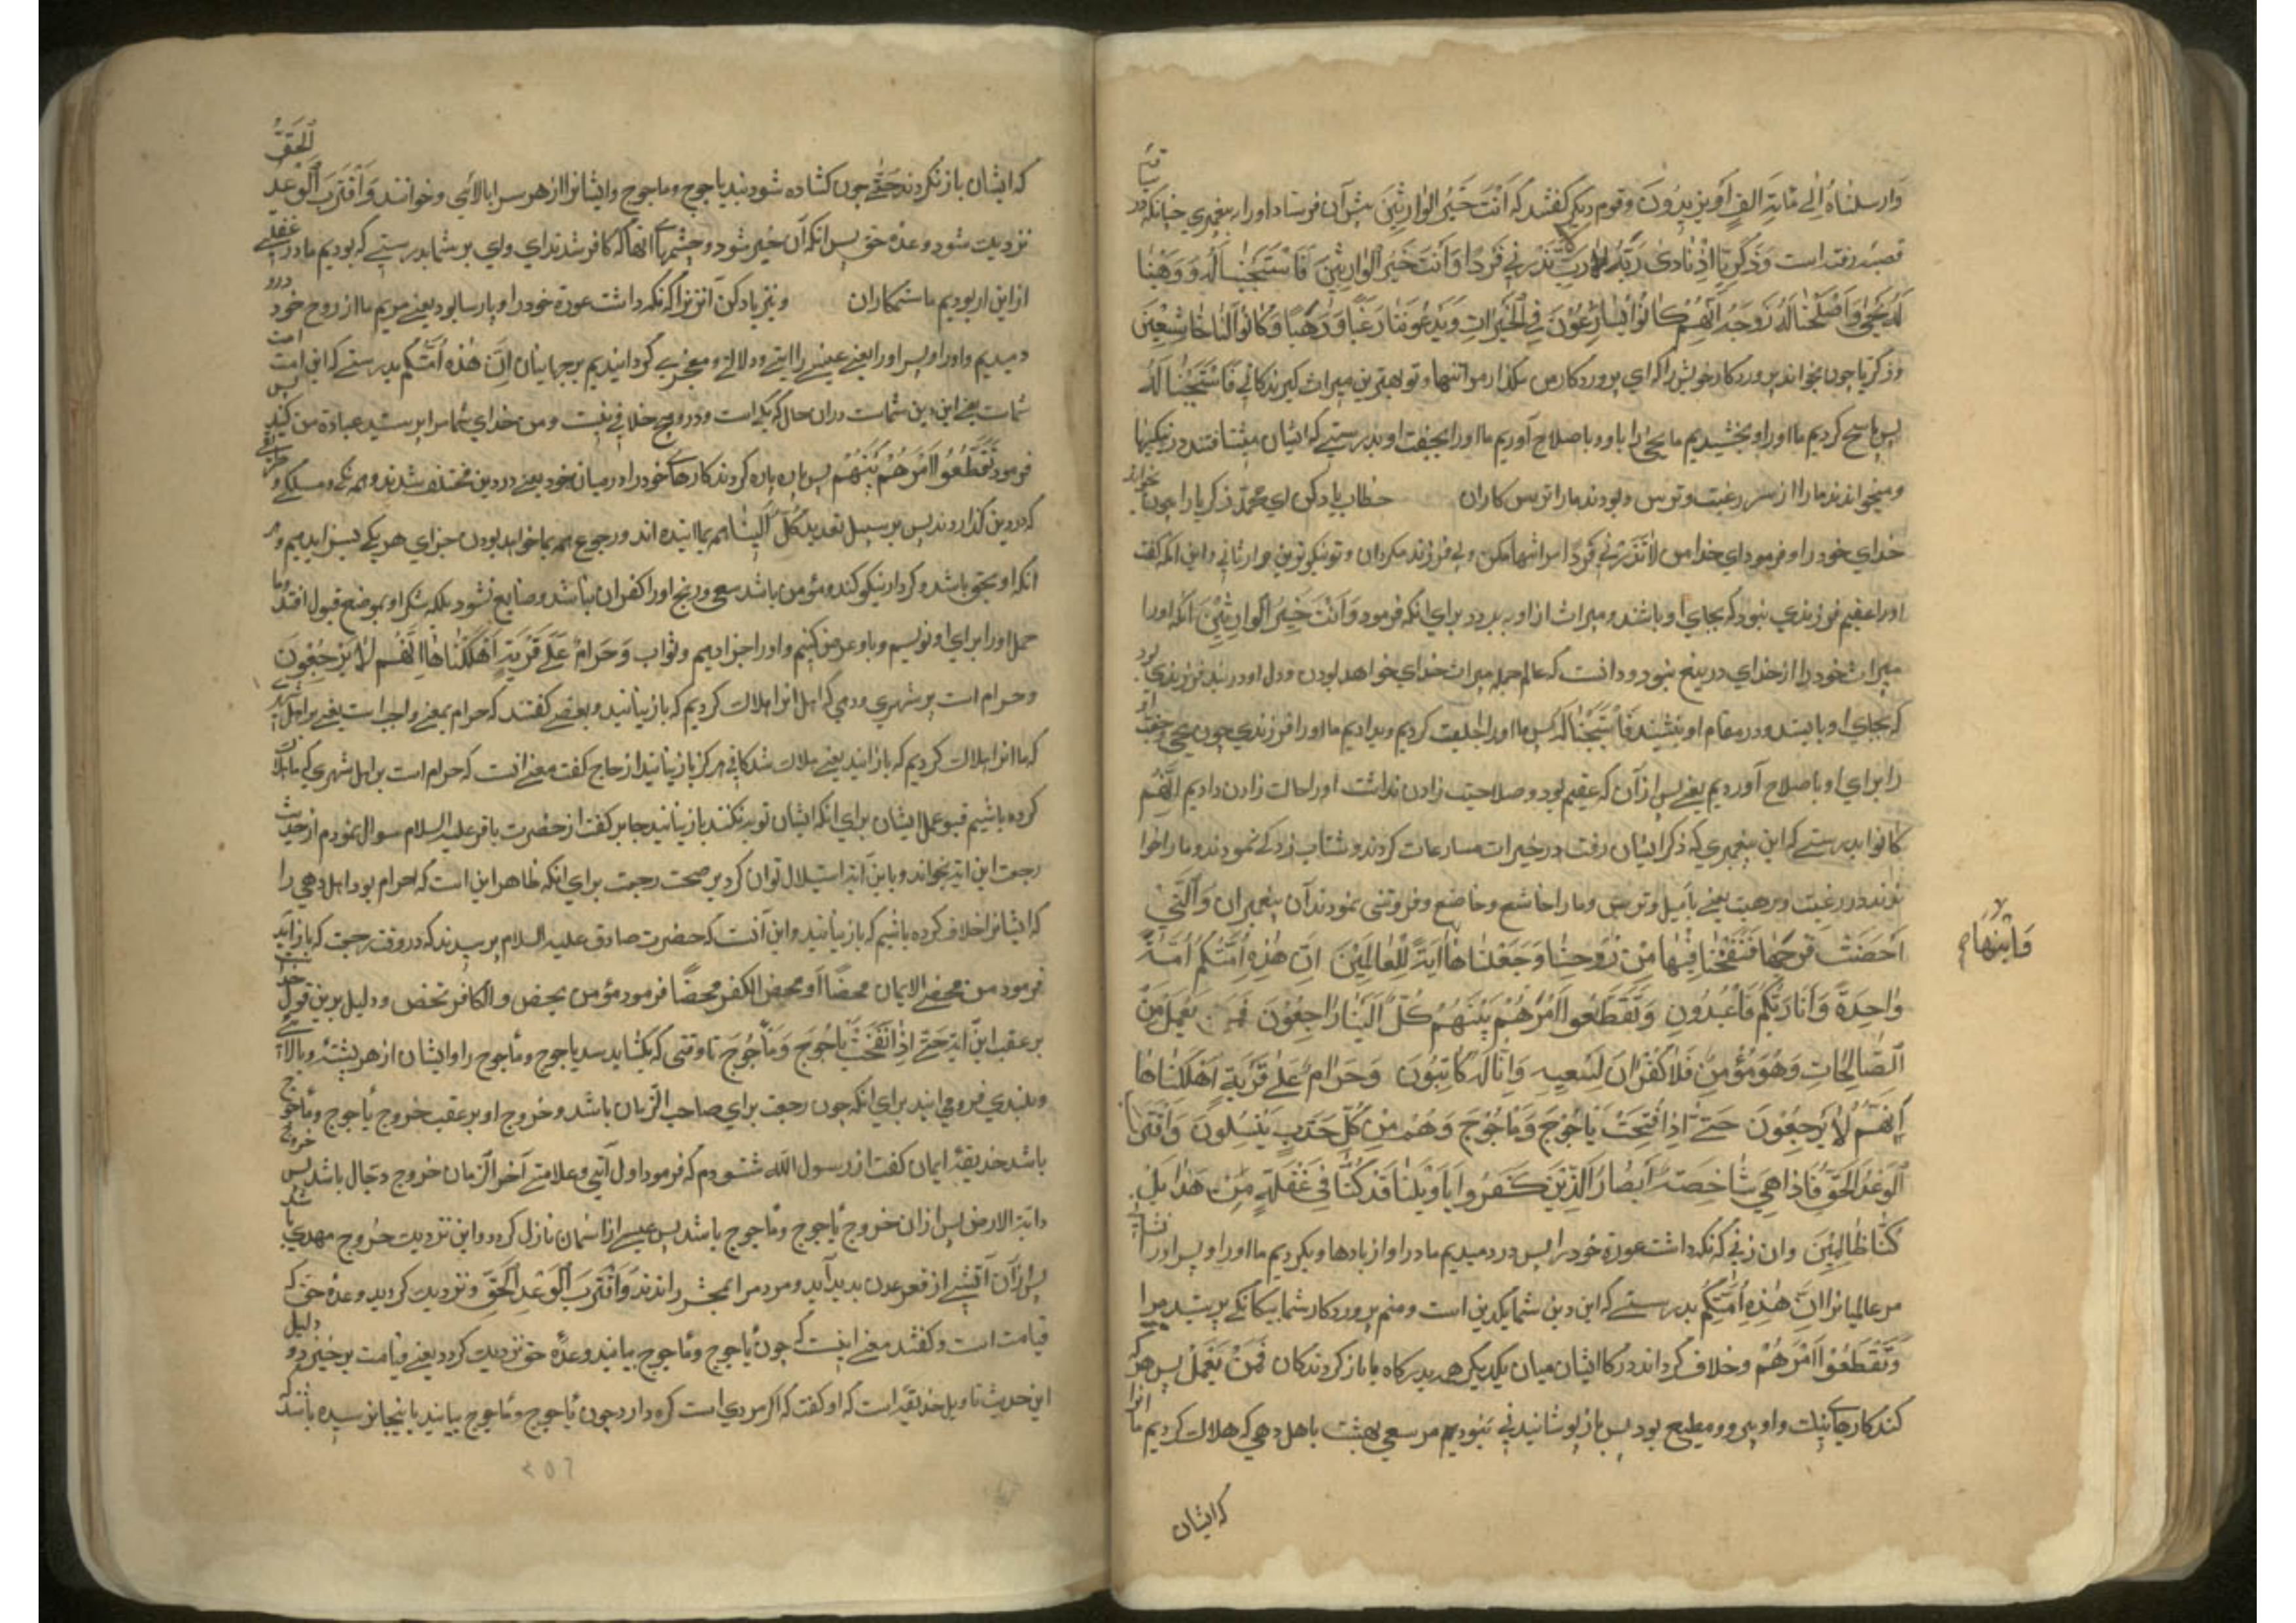 وارسلناه الی مائة الف او یزیدون وقوم دیکر کفتند که انت خیر الوارثین بیش آن فرستاد اورا به پیغمبری جنانکه در
قصه رفته است وذکریا اذ نادی ربه رب لا تذرنی فردا وانت خیر الوارثین فاستجبنا له ووهبنا
له یحیی واصلحنا له زوجه انهم کانوا یسارعون فی الخیرات ویدعوننا رغبا ورهبا وکانوا لنا خاشعین
وزکریا جون بخواند پروردکار خویش را که ای پروردکار من مکذار مرا تنها وتو بهترین میراث کیرندکانی فاستجبنا له
پس باسخ کردیم ما اورا وبخشیدیم ما یحیی را باو وباصلاح آوردیم ما اورا بجفت او بدرستی که ایشان میشتافتند در نیکیها
ومیخواندند مارا از سر رغبت وترس وبودند مارا ترس کاران خطاب یاد کن ای محمد زکریا را جون بخواند
خدای خود را وفرمود ای خدا من لا تذرنی فردا مرا تنها مکن وبی فرزند مکردان وتو نیکوترین وارثانی واین انکه کفت
اورا عقیم فرزندی نبود که بجای او باشند ومیراث از او ببرد برای انکه فرمود وانت خیر الوارثین انکه اورا
میراث خود را از خدای دریغ نبود ودانست که عالم جمله میراث خدای خواهد بودن ودل او در بند فرزندی بود
که بجای او بایستد ودر مقام او بنشیند فاستجبنا له پس ما اورا اجابت کردیم وبدادیم ما اورا فرزندی جون یحیی وجفت
را برای او باصلاح آوردیم یعنی پس از آن که عقیم بود وصلاحیت زادن نداشت اورا حالت زادن دادیم انهم
کانوا بدرستی که این پیغمبری که ذکر ایشان رفت در خیرات مسارعات کردند وشتاب زدکی نمودند ومارا خوا
نوند در رغبت ورهبت یعنی بامیل وترس ومارا خاشع وخاضع وفروتنی نمودند آن پیغمبران والتی
احصنت فرجها فنفخنا فیها من روحنا وجعلناها آیة للعالمین ان هذه امتکم امة
وابنها
واحدة وانا ربکم فاعبدون وتقطعوا امرهم بینهم کل الینا راجعون فمن یعمل من
الصالحات وهو مؤمن فلا کفران لسعیه وانا له کاتبون وحرام علی قریة اهلکناها
انهم لا یرجعون حتی اذا فتحت یاجوج وماجوج وهم من کل حدب ینسلون واقترب
الوعد الحق فاذا هی شاخصة ابصار الذین کفروا یا ویلنا قد کنا فی غفلة من هذا بل
کنا ظالمین وان زنی که نکه داشت عورة خود را پس در دمیدیم ما در او از بادها وبکردیم ما اورا وپسر اورا
مر عالمیانرا ان هذه امتکم بدرستی که این دین شما یکدین است ومنم پروردکار شما بیکانکی پرستید مرا
وتقطعوا امرهم وخلاف کردند در کا ایشان میان یکدیکر همه بدرکاه ما باز کردندکان فمن یعمل پس هر که
کند کارهای نیک واو پی رو ومطیع بود پس باز پوشانیدنی نبود مر سعی بهشت باهل دهی که هلاک کردیم ما انرا
که ایشان
الحق
که ایشان باز نکردند حتی جون کشاده شود بند یاجوج وماجوج وایشانرا از هر سرابالائی وخوانند واقترب الوعد
نزدیک شود وعده حق پس انکه آن خیر شود وچشمهای انها که کافر شدند ای وای بر شما بدرستی که بودیم ما در غفلی
از این ار بودیم ما ستمکاران ونیز یاد کن آنزن را که نکه داشت عورة خود را وپارسا بود یعنی مریم ما از روح خود درو
دمیدیم واورا وپسر اورا یعنی عیسی را ایتی ودلالتی ومعجزی کردانیدیم بر جهانیان ان هذه امتکم بدرستی که این امت امت
شمات یعنی این دین شماست دران حال که یک است ودرو هیچ خلافی نیست ومن خدای شما مرا پرستید عبادة من کنید پس
فرمود فتقطعوا امرهم بینهم پس پاره پاره کردند کارهای خود را در میان خود یعنی در دین مختلف شدند وهر یکی ومسلکی و
که در دین کذاروند پس بر سبیل تهدید کل الینا همه بما اینده اند ورجوع همه بما خواهد بودن جزای هر یکی بسزا بدهیم وهر
انکه او بحق باشد وکردار نیکو کند ومؤمن باشد سعی ورنج اورا کفران نباشد وضایع نشود بلکه شکر او بموضع قبول افتد ما
جمله اورا برای او نویسیم وباو عرض کنیم واورا جزا دهیم وثواب وحرام علی قریة اهلکناها انهم لا یرجعون
وحرام است بر شهری ودهی که اهل انرا هلاک کردیم که باز نیایند وبعضی کفتند که حرام بمعنی واجب است یعنی بر اهل
که ما انرا هلاک کردیم که باز ایند یعنی هلاک شدکانی هرکز باز نیایند از حاج کفت معنی انست که حرام است بر اهل شهری که ما هلاک
کرده باشیم قبو عمل ایشان برای انکه ایشان توبه نکنند باز نیایند جابر کفت از حضرت باقر علیه السلام سوال نمودم از حدیث
رجعت این ایة بخواند وباین آیة استدلال توان کرد بر صحت رجعت برای انکه ظاهر این است که حرام بود اهل دهی را
که ایشانرا خلاف کرده باشیم که باز نیایند واین آنست که حضرت صادق علیه السلام پرسیدند که در وقت رجعت که باز آید
فرمود من محض الایمان محضا او محض الکفر محضا فرمود مؤمن محض والکافر محض ودلیل برین قول
بر عقب این آیة حتی اذا فتحت یاجوج وماجوج تا وقتی که بکشاید سد یاجوج وماجوج را وایشان از هر پشته وبالائی
وبلندی فرو می ایند برای انکه جون رجعت برای صاحب الزمان باشد وخروج او بر عقب خروج یاجوج وماجوج
باشد حذیفه ایمان کفت از رسول الله شنودم که فرمود اول آیتی وعلامتی آخر الزمان خروج دجال باشد پس خروج
دابة الارض پس ازان خروج یاجوج وماجوج باشد پس عیسی از اسمان نازل کردد واین نزدیک خروج مهدی باشد
پس از آن آتشی از قعر عدن بدید آید ومردمرا بمحشر راندند واقترب الوعد الحق ونزدیک کردید وعده حق که
قیامت است وکفتند معنی اینست که جون یاجوج وماجوج بیایند وعده حق نزدیک کردد یعنی قیامت برخیزد ودلیل
این حدیث تاویل حذیفه است که او کفت که اکر مردی است کره دارد جون یاجوج وماجوج بیایند باینجا نرسیده باشد که